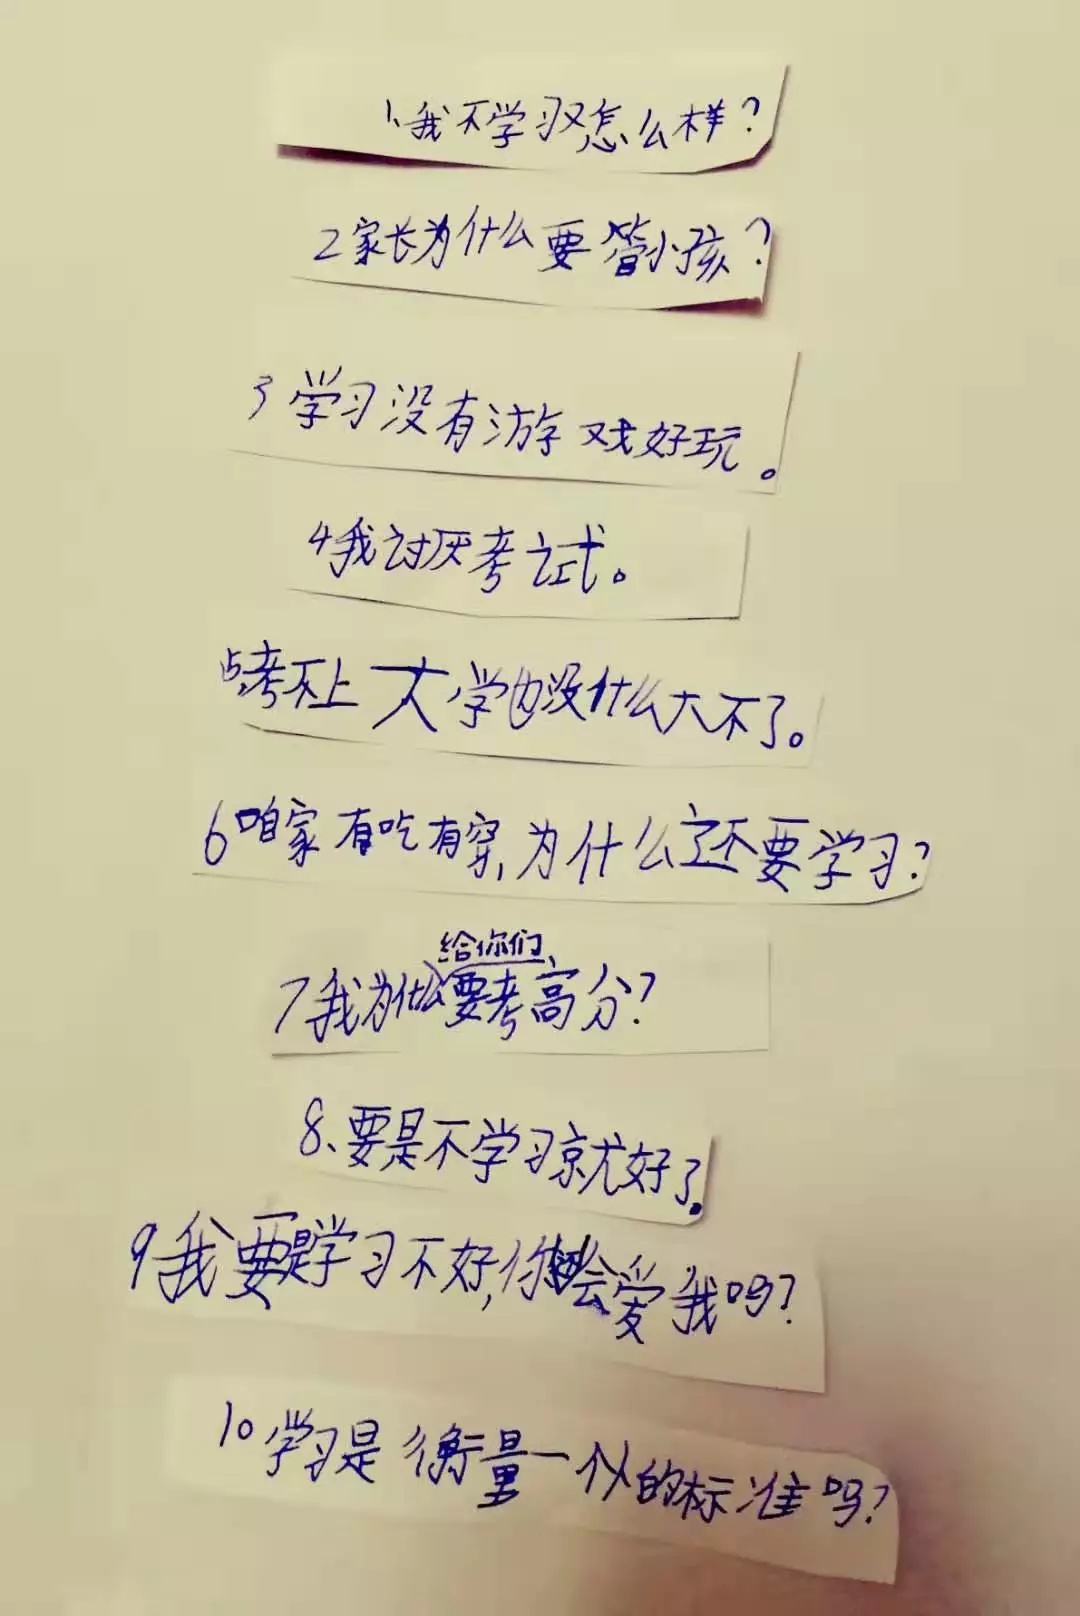 1、我不学习又怎么样？
2家长为什么要管小孩？
3学习没有游戏好玩。
4我讨厌考试。
5,考不上大学也没什么大不了。
6咱家有吃有穿,为什么还要学习？
给你们
7我为什么要考高分？
8、要是不学习就好了。
9我要是学习不好,你会爱我吗？
10学习是衡量一个人的标准吗？